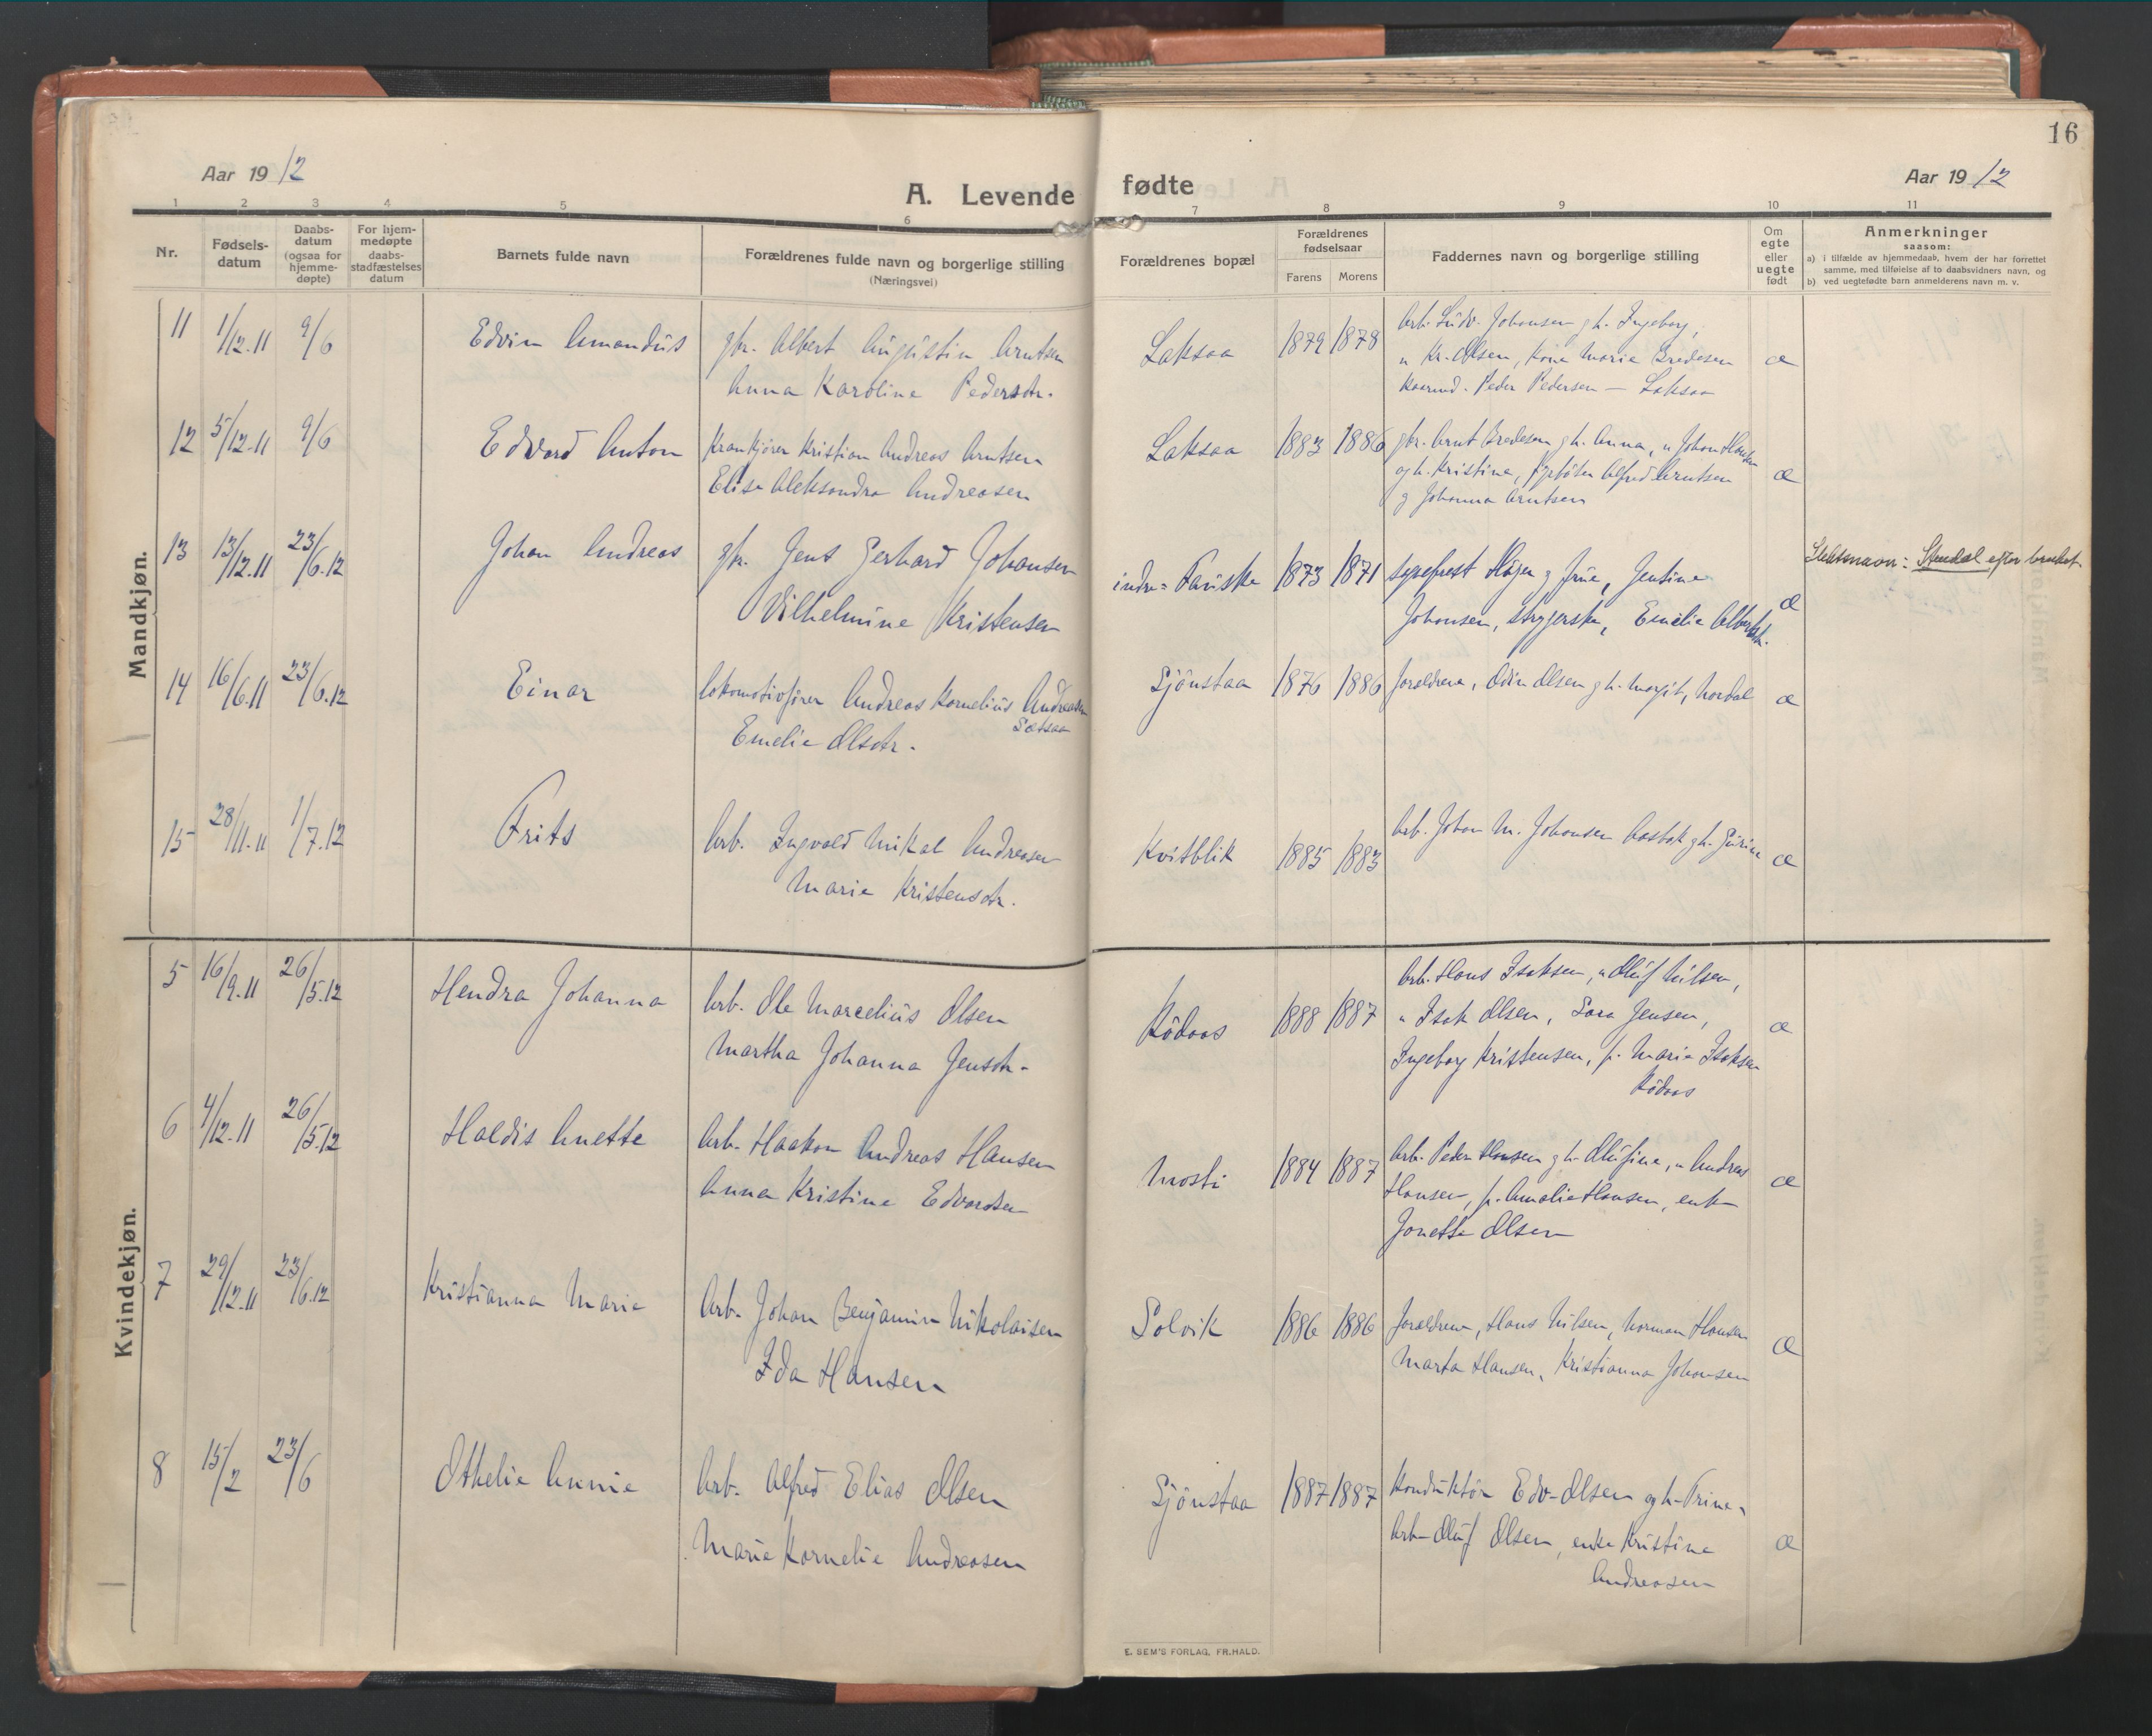 16
Aar 1912
A. Levende fødte
Aar 1912
1 2 3 4 5 6 7 8 9 10 11
Nr.
Fødsels-
datum
Daabs-
datum
(ogsaa for
hjemme-
døpte)
For hjem-
medøpte
daabs-
stadfæstelses
datum
Barnets fulde navn
Forældrenes fulde navn og borgerlige stilling
(Næringsvei)
Forældrenes bopæl
Forældrenes
fødselsaar
Farens Morens
Faddernes navn og borgerlige stilling
Om
egte
eller
uegte
født
Anmerkninger
saasom:
a) i tilfælde av hjemmedaab, hvem der har forrettet
samme, med tilføielse af to daabsvidners navn, og
b) ved uegtefødte barn anmelderens navn m. v.
Mandkjøn.
11 1/12.11 9/6 Edvin Amandus gbr. Albert Augustin Arntsen
Anna Karoline Pedersdtr.
Laksaa 1879 1878
Arb. Ludv. Johansen g h. Ingeborg,
" Kr. Olsen, Kone Marie Bredesen
Peder Pedersen — Laksaa
æ
12 5/12.11 9/6 Edvard Anton Krankjører Kristian Andreas Arntsen
Elise Aleksandra Andreasen
Laksaa 1883 1886
gbr. Arnt Bredesen g h. Anna, " Johan Hansen
og h. Kristine, Alfred Arntsen
g Johanna Arntsen
æ
13 13/12.11 23/6.12 Johan Andreas gbr. Jens Gerhard Johansen
Vilhelmine Kristensen
indre-Fauske 1873 1871
sogneprest Høyer g frue, Jentine
Johansen, strygerske, Emelie Albertsdtr.
æ
Slektsnavn: Stendal efter bruket.
14 16/6.11 23/6.12 Einar Lokomotivfører Andreas Kornelius Andreasen
Sætsaa
Emelie Olsdtr.
Sjønstaa 1876 1886
foreldrene, Odin Olsen g h. Margit, Nordal
æ
15 28/11.11 1/7.12 Frits Arb. Ingvald Mikal Andreasen
Marie Kristensdtr.
Kvitblik 1885 1883
Arb. Johan M. Johansen g h.
æ
Kvindekjøn.
5 16/9.11 26/5.12 Hendra Johanna Arb. Ole Marcelius Olsen
Martha Johanna Jensdtr.
Rödaas 1888 1887
Arb. Hans Isaksen, " Oluf Nilsen,
" Isak Olsen, Sara Jensen,
Ingeborg Kristensen, p. Marie Isaksen
Rödaas
æ
6 4/12.11 26/5.12 Haldis Anette Arb. Haakon Andreas Hansen
Anna Kristine Edvardsen
Mosti 1884 1887
Arb. Peder Hansen g h. Olufine, " Andreas
Hansen, p. Amalie Hansen, enke
Jonette Olsen
æ
7 29/12.11 23/6.12 Kristianna Marie Arb. Johan Benjamin Nikolaisen
Ida Hansen
Solvik 1886 1886
foreldrene, Hans Nilsen, Norman Hansen
Marta Hansen, Kristianna Johansen
æ
8 15/2 23/6 Othelie Annie Arb. Alfred Elias Olsen
Marie Kornelie Andreasen
Sjönstaa 1887 1887
Konduktör Edv. Olsen og h. Trine,
Arb. Oluf Olsen, enke Kristine
Andreasen
æ
E. SEM'S FORLAG, FR.HALD.